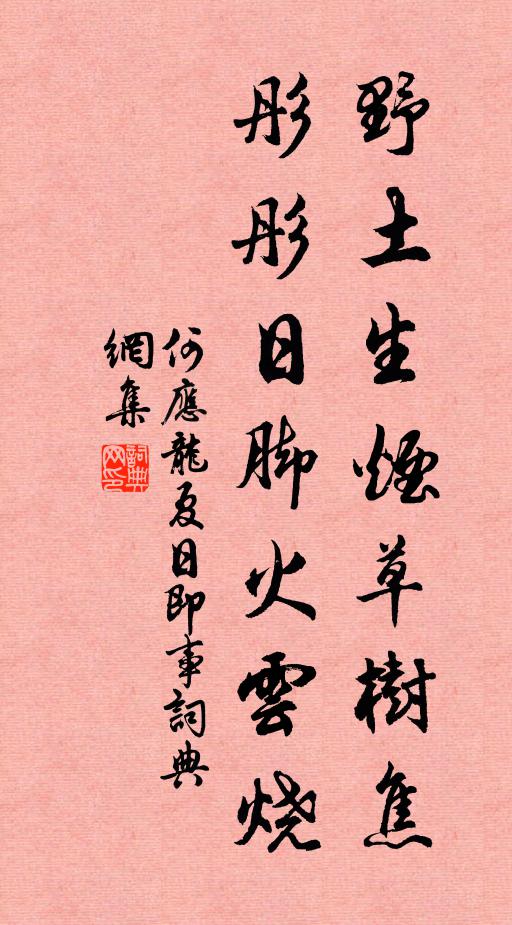 野土生煙草樹焦
彤彤日脚火雲燒
何應龍夏日即事詞典
網集
詞典
网印